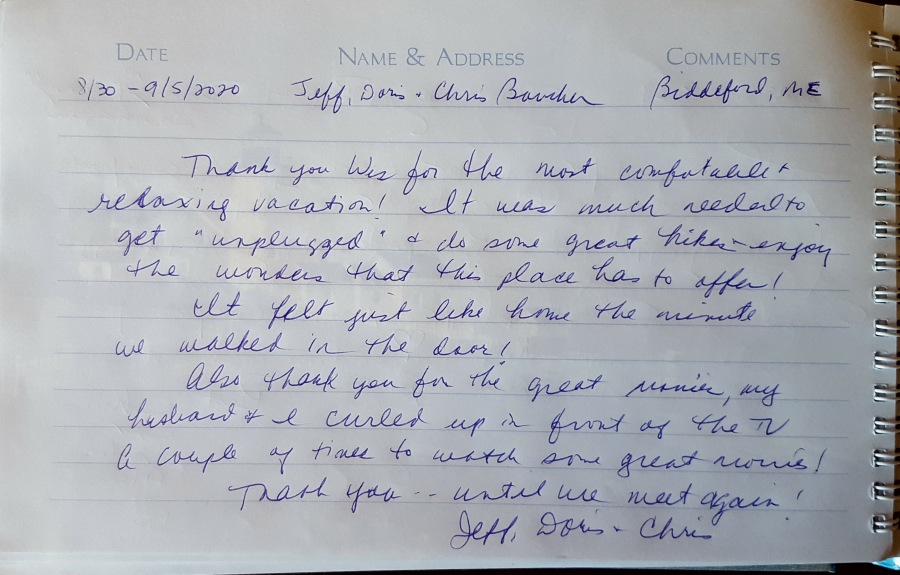 DATE NAME & ADDRESS COMMENTS
8/30 - 9/5/2020 Jeff, Doris & Chris Boucher Biddeford, ME
Thank you Wes for the most comfortable &
relaxing vacation! It was much needed to
get "unplugged" & do some great hikes - enjoy
the wonders that this place has to offer!
It felt just like home the minute
we walked in the door!
Also thank you for the great movies, my
husband & I curled up in front of the TV
a couple of times to watch some great movies!
Thank you -- until we meet again!
Jeff, Doris & Chris